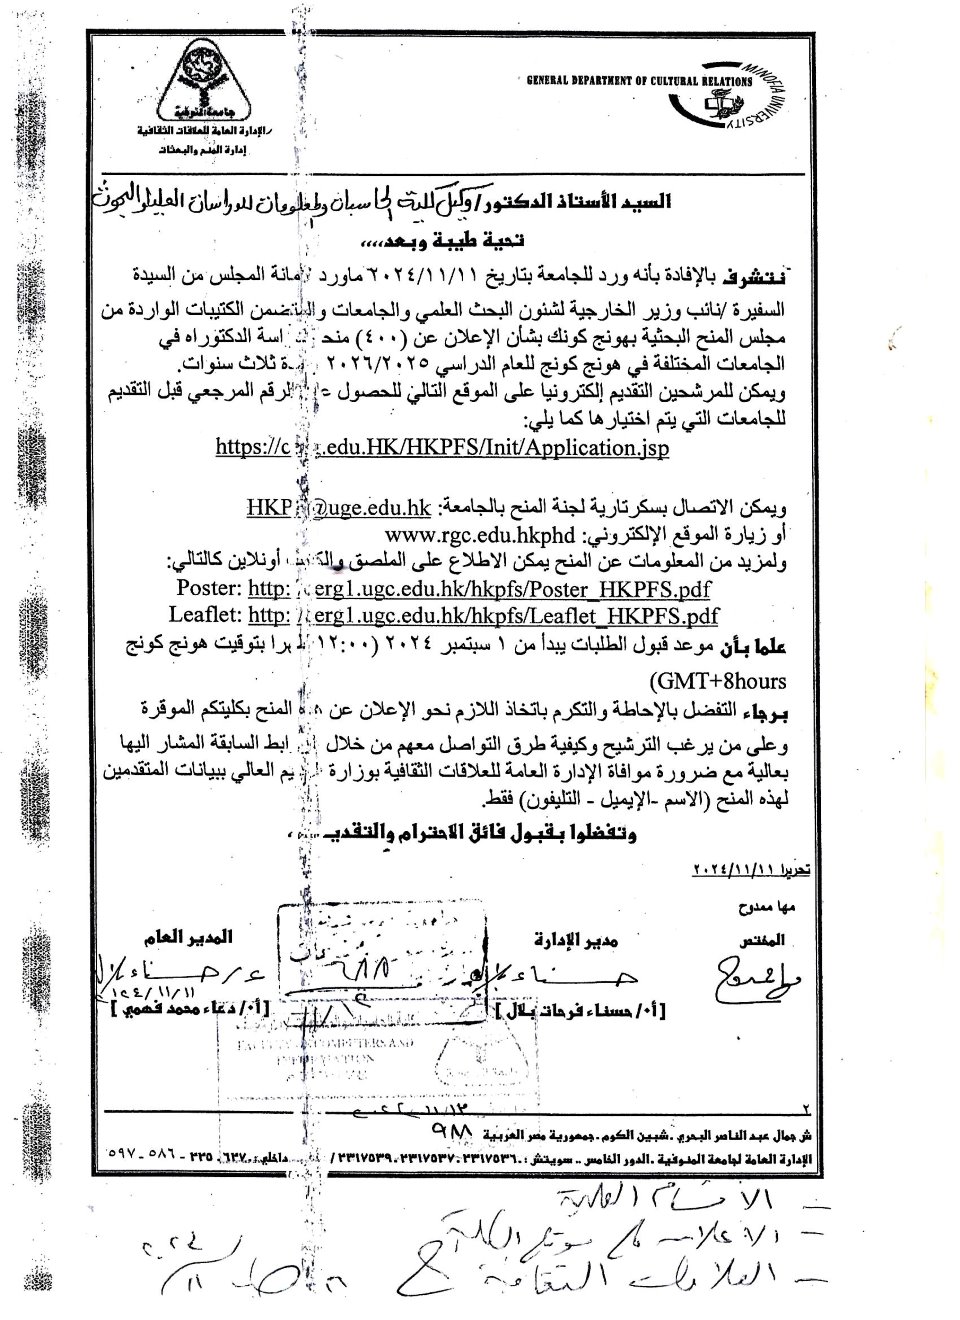 GENERAL DEPARTMENT OF CULTURAL RELATIONS
MINOFIA UNIVERSITY
جامعة المنوفية
الإدارة العامة للعلاقات الثقافية
إدارة المنح والبعثات
السيد الأستاذ الدكتور/ وكيل كلية الحاسبات والمعلومات للدراسات العليا والبحوث
تحية طيبة وبعد،،،،
نتشرف بالإفادة بأنه ورد للجامعة بتاريخ ٢٠٢٤/١١/١١ ماورد المجلس من السيدة
السفيرة /نائب وزير الخارجية لشئون البحث العلمي والجامعات الكتيبات الواردة من
مجلس المنح البحثية بهونج كونك بشأن الإعلان عن (٤٠٠) الدكتوراه في
الجامعات المختلفة في هونج كونج للعام الدراسي ٢٠٢٦/٢٠٢٥ ثلاث سنوات.
ويمكن للمرشحين التقديم إلكترونيا على الموقع التالي للحصول الرقم المرجعي قبل التقديم
للجامعات التي يتم اختيارها كما يلي:
.edu.HK/HKPFS/Init/Application.jsp
ويمكن الاتصال بسكرتارية لجنة المنح بالجامعة: @uge.edu.hk
أو زيارة الموقع الإلكتروني: www.rgc.edu.hkphd
ولمزيد من المعلومات عن المنح يمكن الاطلاع على الملصق أونلاين كالتالي:
Poster: http: erg1.ugc.edu.hk/hkpfs/Poster_HKPFS.pdf
Leaflet: http: erg1.ugc.edu.hk/hkpfs/Leaflet_HKPFS.pdf
علما بأن موعد قبول الطلبات يبدأ من ١ سبتمبر ٢٠٢٤ (١٢:٠٠ بتوقيت هونج كونج
GMT+8hours)
برجاء التفضل بالإحاطة والتكرم باتخاذ اللازم نحو الإعلان عن المنح بكليتكم الموقرة
وعلى من يرغب الترشيح وكيفية طرق التواصل معهم من خلال السابقة المشار اليها
بعالية مع ضرورة موافاة الإدارة العامة للعلاقات الثقافية بوزارة العالي ببيانات المتقدمين
لهذه المنح (الاسم -الإيميل - التليفون) فقط.
وتفضلوا بقبول فائق الاحترام والتقدير
تحريرا ٢٠٢٤/١١/١١
مها ممدوح
المختص
مدير الإدارة
المدير العام
[أ٠/ حسناء فرحات بلال]
[أ٠/ دعاء محمد فهمي]
٩٨٨
FACULTY OF COMPUTERS AND
INFORMATION
٢
ش جمال عبد الناصر البحري .شبين الكوم .جمهورية مصر العربية
٩٨٨
الإدارة العامة لجامعة المنوفية .الدور الخامس .. سويتش : .٢٣١٧٥٣٦ .٢٣١٧٥٣٧ .٢٣١٧٥٣٩ / داخلي: ٦٣٧ . ٣٣٥ - ٥٨٦ - ٥٩٧
– الأقسام العلمية
– الاعلان على موقع الكلية
– العلاقات الثقافية